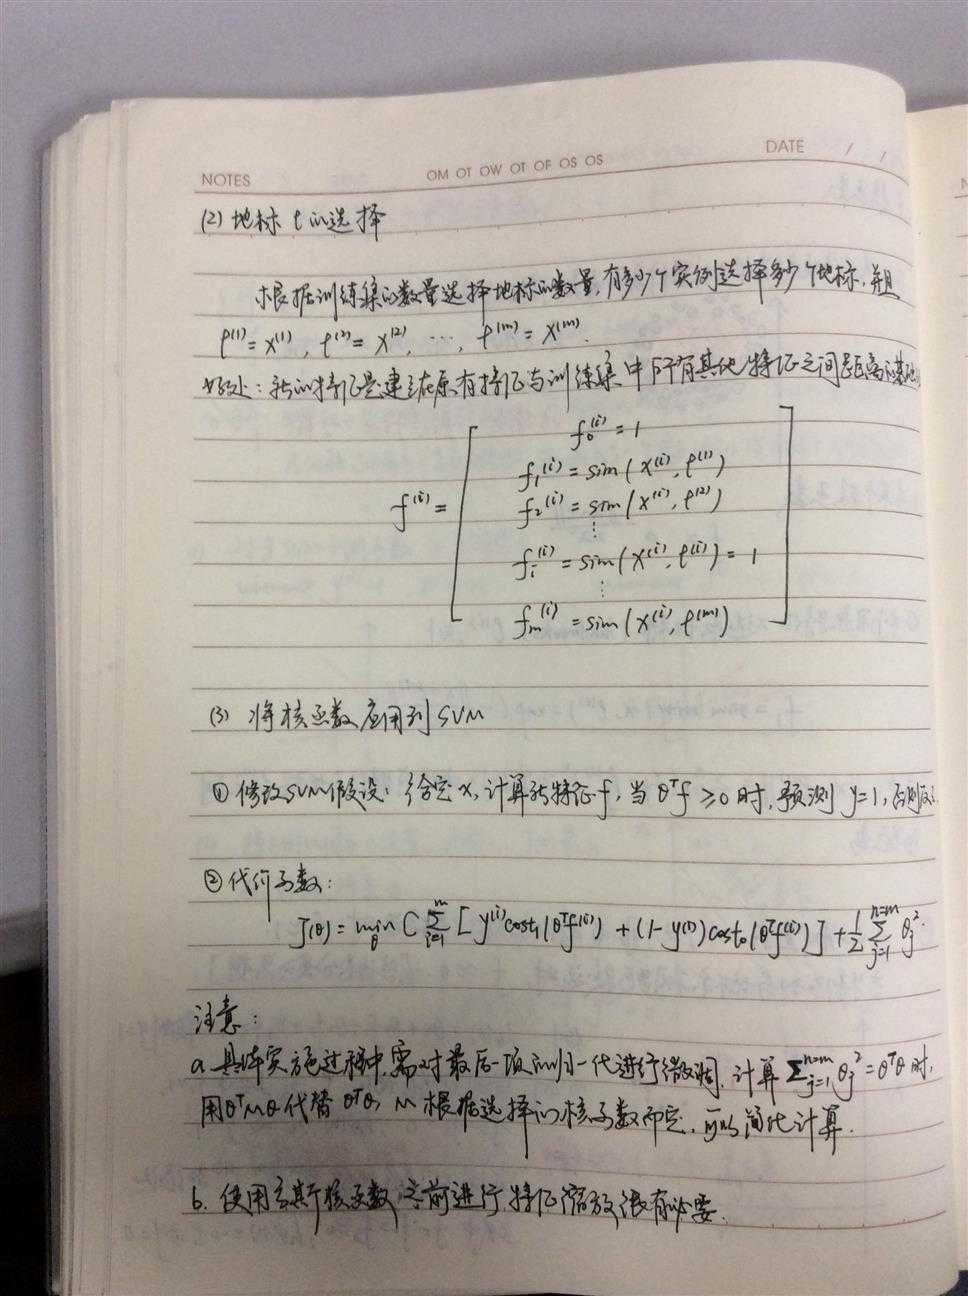 NOTES OM OT OW OT OF OS OS DATE / /
(2) 地标 ℓ 的选择
根据训练集的数量选择地标的数量,有多少个实例选择多少个地标,并且
ℓ⁽¹⁾ = x⁽¹⁾, ℓ⁽²⁾ = x⁽²⁾, ⋯, ℓ⁽ᵐ⁾ = x⁽ᵐ⁾.
好处:新的特征是建立在原有特征与训练集中所有其他特征之间距离的基础
f₀⁽ⁱ⁾ = 1
f₁⁽ⁱ⁾ = sim(x⁽ⁱ⁾, ℓ⁽¹⁾)
f⁽ⁱ⁾ = f₂⁽ⁱ⁾ = sim(x⁽ⁱ⁾, ℓ⁽²⁾)
⋮
fᵢ⁽ⁱ⁾ = sim(x⁽ⁱ⁾, ℓ⁽ⁱ⁾) = 1
⋮
fₘ⁽ⁱ⁾ = sim(x⁽ⁱ⁾, ℓ⁽ᵐ⁾)
(3) 将核函数应用到SVM
① 修改SVM假设:给定x,计算新特征f,当 θᵀf ≥ 0 时,预测 y=1,否则反之
② 代价函数:
J(θ) = min_θ C Σᵢ₌₁ᵐ [y⁽ⁱ⁾cost₁(θᵀf⁽ⁱ⁾) + (1-y⁽ⁱ⁾)cost₀(θᵀf⁽ⁱ⁾)] + ½ Σⱼ₌₁ⁿ⁼ᵐ θⱼ².
注意:
a. 具体实施过程中,需对最后一项的归一化进行微调,计算 Σⱼ₌₁ⁿ⁼ᵐ θⱼ² = θᵀθ 时,
用θᵀMθ代替 θᵀθ, M 根据选择的核函数而定,可以简化计算.
b. 使用高斯核函数之前进行特征缩放很有必要.